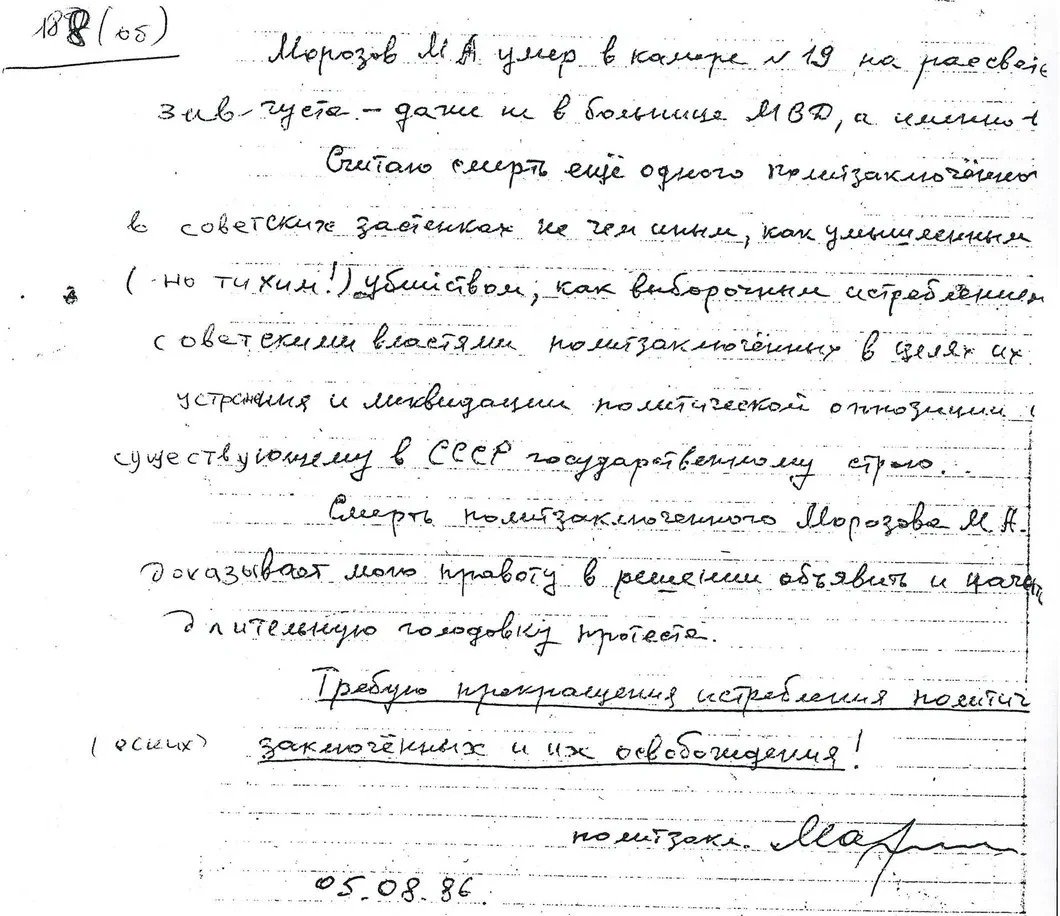 188 (об)
Морозов М А умер в камере № 19 на рассвете
3 августа – даже не в больнице МВД, а именно
Считаю смерть ещё одного политзаключённо
в советских застенках не чем иным, как умышленным
( но тихим!) убийством, как виборочным истреблением
советскими властями политзаключённых в целях их
устранения и ликвидации политической оппозиции
существующему в СССР государственному строю...
Смерть политзаключенного Морозова М.А.
доказывает мою правоту в решении объявить и начать
длительную голодовку протеста.
Требую прекращения истребления политич
(еских) заключённых и их освобождения!
политзакл.
05.08.86.